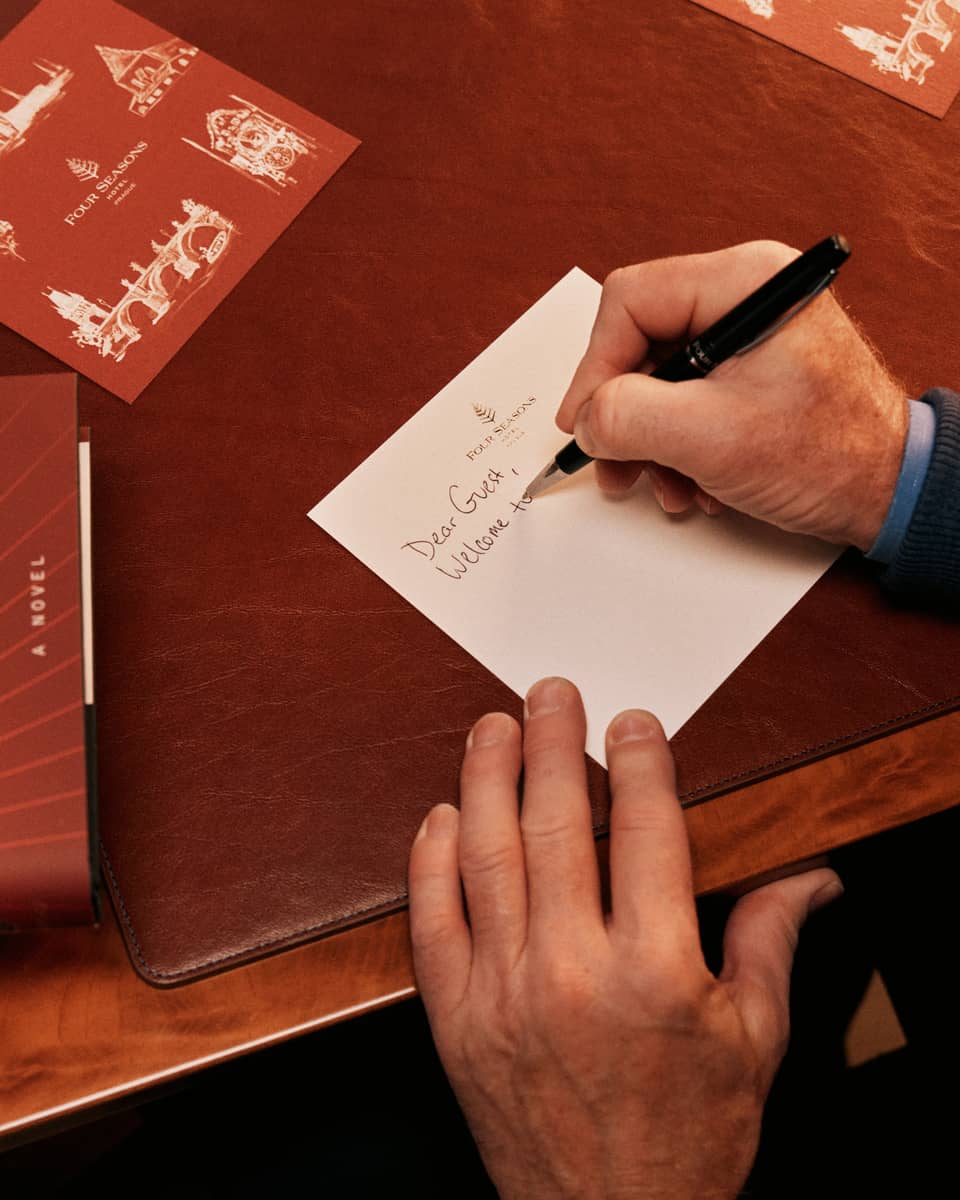 FOUR SEASONS
HOTEL
PRAGUE
A NOVEL
FOUR SEASONS
HOTEL
Dear Guest,
Welcome to